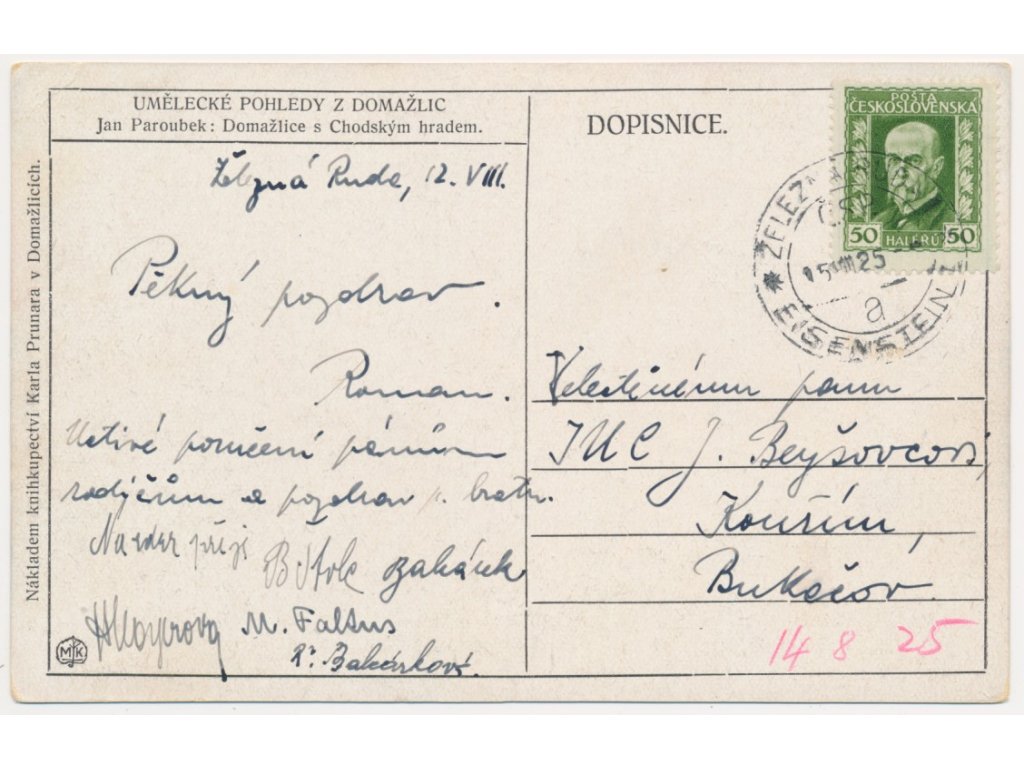 UMĚLECKÉ POHLEDY Z DOMAŽLIC
Jan Paroubek: Domažlice s Chodským hradem.
Nákladem knihkupectví Karla Prunara v Domažlicích.
Železná Ruda, 12. VIII.
Pěkný pozdrav.
Roman.
Uctivé poručení pánům
rodičům a pozdrav p. bratr.
Nazdar
M. Faltus
MK
DOPISNICE.
POŠTA
ČESKOSLOVENSKÁ
50 HALÉŘŮ 50
ŽELEZNÁ RUDA
EISENSTEIN
15 VIII 25
a
Velectěnému panu
J. Beyšovcovi,
Kouřim,
Bukačov.
14 8 25